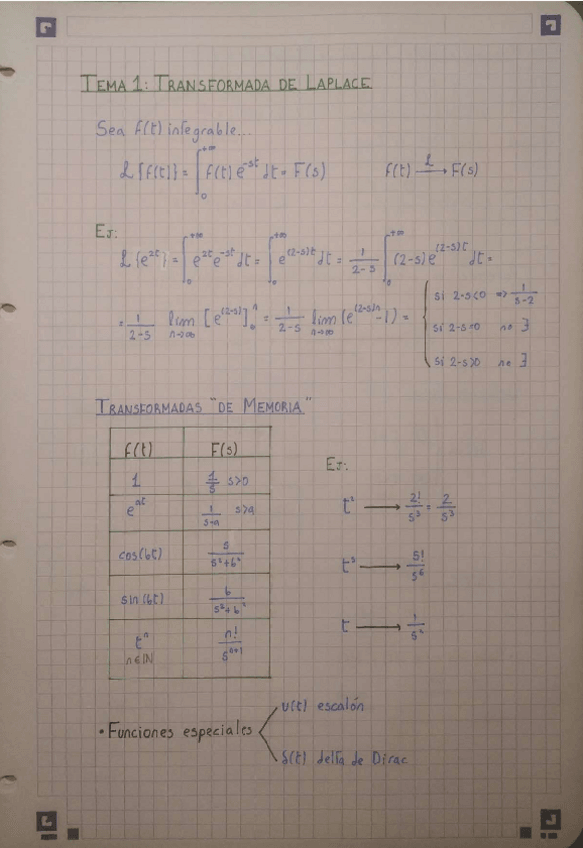 TEMA 1: TRANSFORMADA DE LAPLACE
Sea f(t) integrable...
ℒ{f(t)} = ∫₀^{+∞} f(t) e^{-st} dt = F(s)    f(t) —ℒ→ F(s)
EJ:
ℒ{e^{2t}} = ∫₀^{+∞} e^{2t} e^{-st} dt = ∫₀^{+∞} e^{(2-s)t} dt = 1/(2-s) ∫₀^{+∞} (2-s) e^{(2-s)t} dt =
= 1/(2-s) lim_{n→∞} [e^{(2-s)}]₀^n = 1/(2-s) lim_{n→∞} (e^{(2-s)n} - 1) = {
si 2-s<0 => 1/(s-2)
si 2-s=0 no ∃
si 2-s>0 no ∃
TRANSFORMADAS "DE MEMORIA"
f(t)    F(s)
1    1/s s>0
e^{at}    1/(s-a) s>a
cos(bt)    s/(s²+b²)
sin(bt)    b/(s²+b²)
t^n n∈ℕ    n!/s^{n+1}
EJ:
t² → 2!/s³ = 2/s³
t⁵ → 5!/s⁶
t → 1/s²
• Funciones especiales
u(t) escalón
δ(t) delta de Dirac